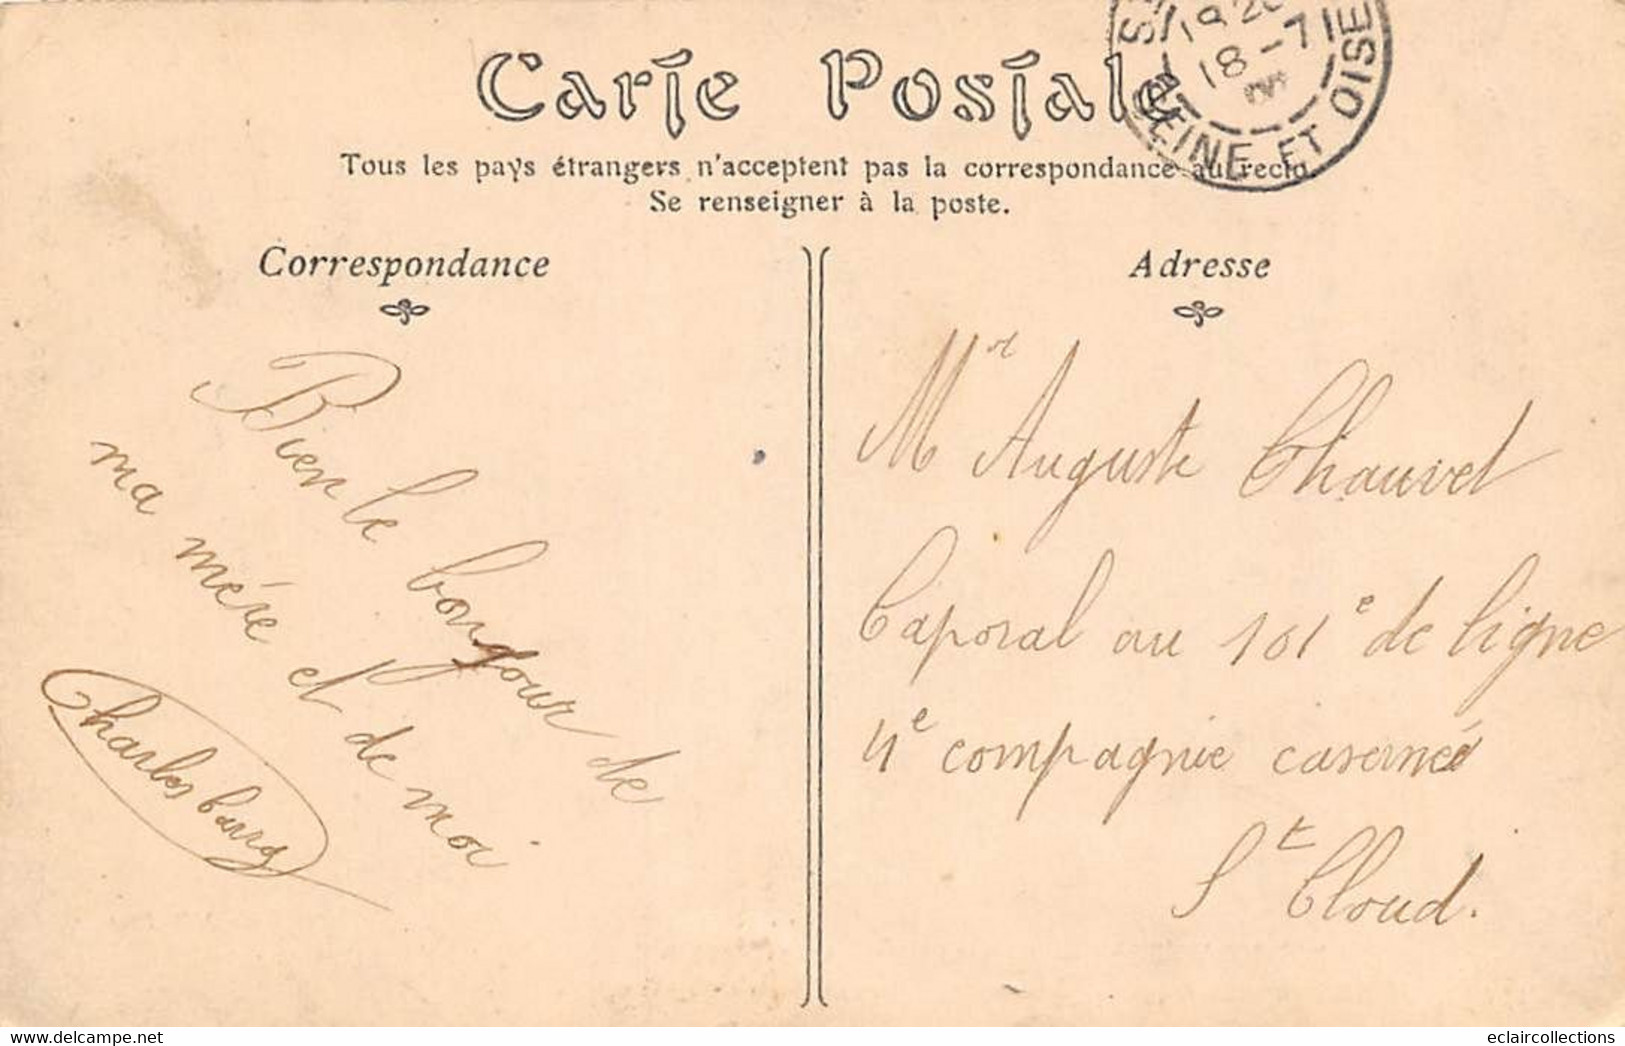 Carte Postale
Tous les pays étrangers n'acceptent pas la correspondance au recto.
Se renseigner à la poste.
Correspondance
Bien le bonjour de
ma mère et de moi
Charles
Adresse
Mr Auguste Chauvet
Caporal au 101e de ligne
4e compagnie caserné
St Cloud.
18-7
SEINE ET OISE
www.delcampe.net
eclaircollections